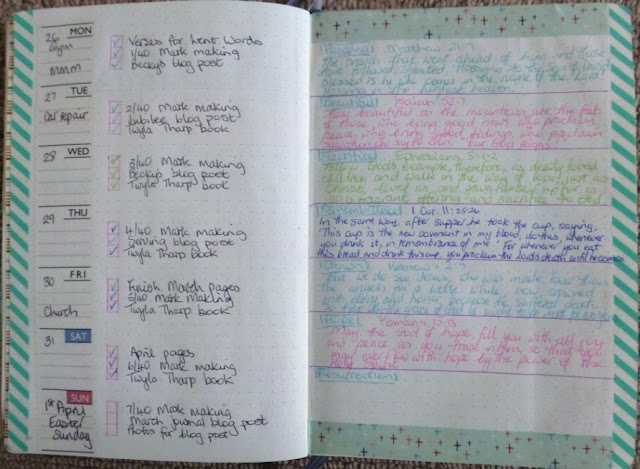 MON
26
Gym
Verses for Lent Words
1/40 Mark making
Becky's blog post
TUE
27
Car repair
2/40 Mark making
Jubilee blog post
Twyla Tharp book
WED
28
3/40 Mark making
Becky's blog post
Twyla Tharp book
THU
29
4/40 Mark making
Serving blog post
Twyla Tharp book
FRI
30
Church
Finish March pages
5/40 Mark Making
Twyla Tharp book
SAT
31
April pages
6/40 Mark making
Twyla Tharp book
SUN
1st April
Easter
Sunday
7/40 Mark making
March journal blog post
Photos for blog post
Hosanna! Matthew 21:9
The crowds that went ahead of him and those
that followed shouted, "Hosanna to the Son of David!
Blessed is he who comes in the name of the Lord!
Hosanna in the highest heaven."
Beautiful Isaiah 52:7
How beautiful on the mountains are the feet
of those who bring good news, who proclaim
peace, who bring good tidings, who proclaim
salvation, who say to Zion, "Your God reigns!"
Ephesians 5:1-2
Follow God's example, therefore, as dearly loved
children and walk in the way of love, just as
Christ loved us and gave himself up for us
1 Cor. 11:25-26
In the same way, after supper he took the cup, saying,
"This cup is the new covenant in my blood; do this, whenever
you drink it, in remembrance of me." For whenever you eat
this bread and drink this cup, you proclaim the Lord's death until he comes
Crown Hebrews 2:9
But we do see Jesus, who was made lower than
the angels for a little while, now crowned
with glory and honor because he suffered death,
Hope! Romans 15:13
May the God of hope fill you with all joy
and peace as you trust in him, so that you
may overflow with hope by the power of the
Holy Spirit
Resurrection!